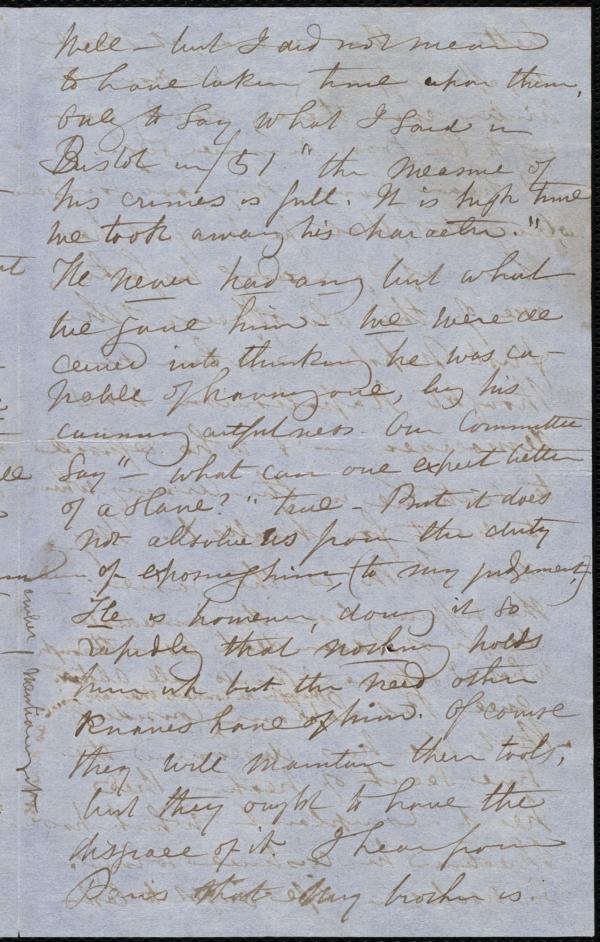 Well - but I did not mean
to have taken time upon them,
only to say what I said in
Bristol in /51 "the measure of
his crimes is full. It is high time
we took away his character."
He never had any but what
we gave him - we were de
ceived into thinking he was ca-
pable of having one, by his
cunning artfulness. Our Committee
say "- what can one expect better
of a slave?" true - But it does
not absolve us from the duty
of exposing him, (to my judgement,)
He is however, doing it so
rapidly that nothing holds
him up but the need other
knaves have of him. Of course
they will maintain their tools,
but they ought to have the
disgrace of it. I hear from
Paris that my brother is